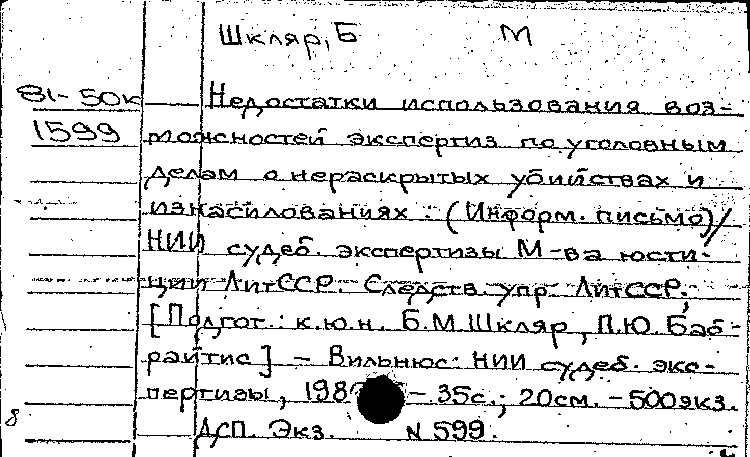 Шкляр, Б М
81-50к Недостатки использования воз-
1599 можностей экспертиз по уголовным
делам о нераскрытых убийствах и
изнасилованиях : (Информ. письмо) /
НИИ судеб. экспертизы М-ва юсти-
ции ЛитССР. Следств. упр. ЛитССР;
[Подгот.: к.ю.н. Б.М.Шкляр, П.Ю. Баб-
райтис] - Вильнюс: НИИ судеб. экс-
пертизы, - 35с.; 20см. - 500экз.
8 ДСП. Экз. N 599.